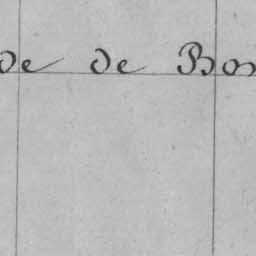 de de Bos